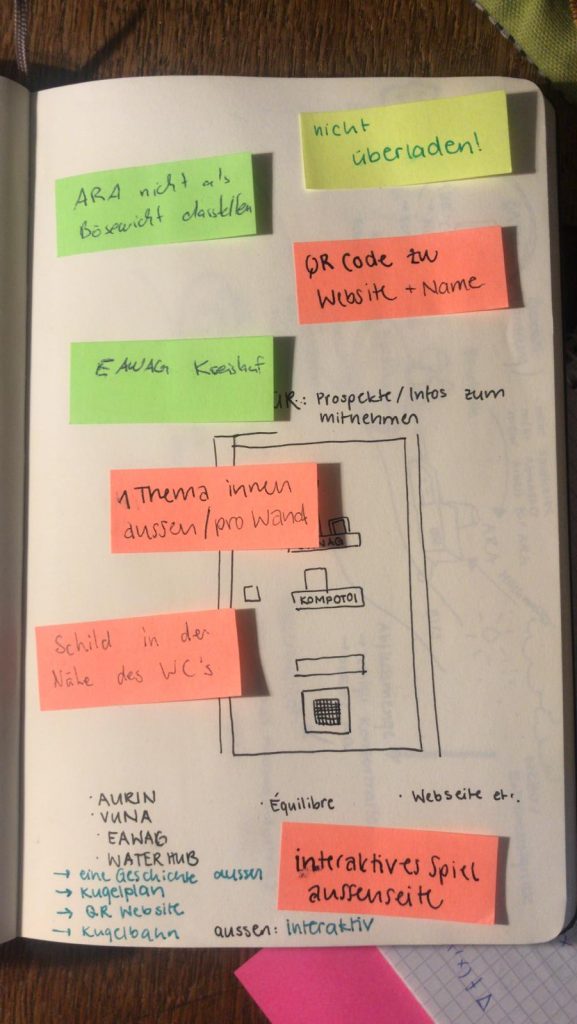 nicht
überladen!
ARA nicht als
Bösewicht darstellen
QR Code zu
Website + Name
EAWAG Kreislauf
ÜR: Prospekte/Infos zum
mitnehmen
1 Thema innen
aussen/pro Wand
WAG
KOMPOTOI
Schild in der
Nähe des WC's
· AURIN
· VUNA
· EAWAG
· WATERHUB
· Équilibre
· Webseite etc.
→ eine Geschichte aussen
→ Kugelplan
→ QR Website
→ Kugelbahn
interaktives Spiel
aussenseite
aussen: interaktiv